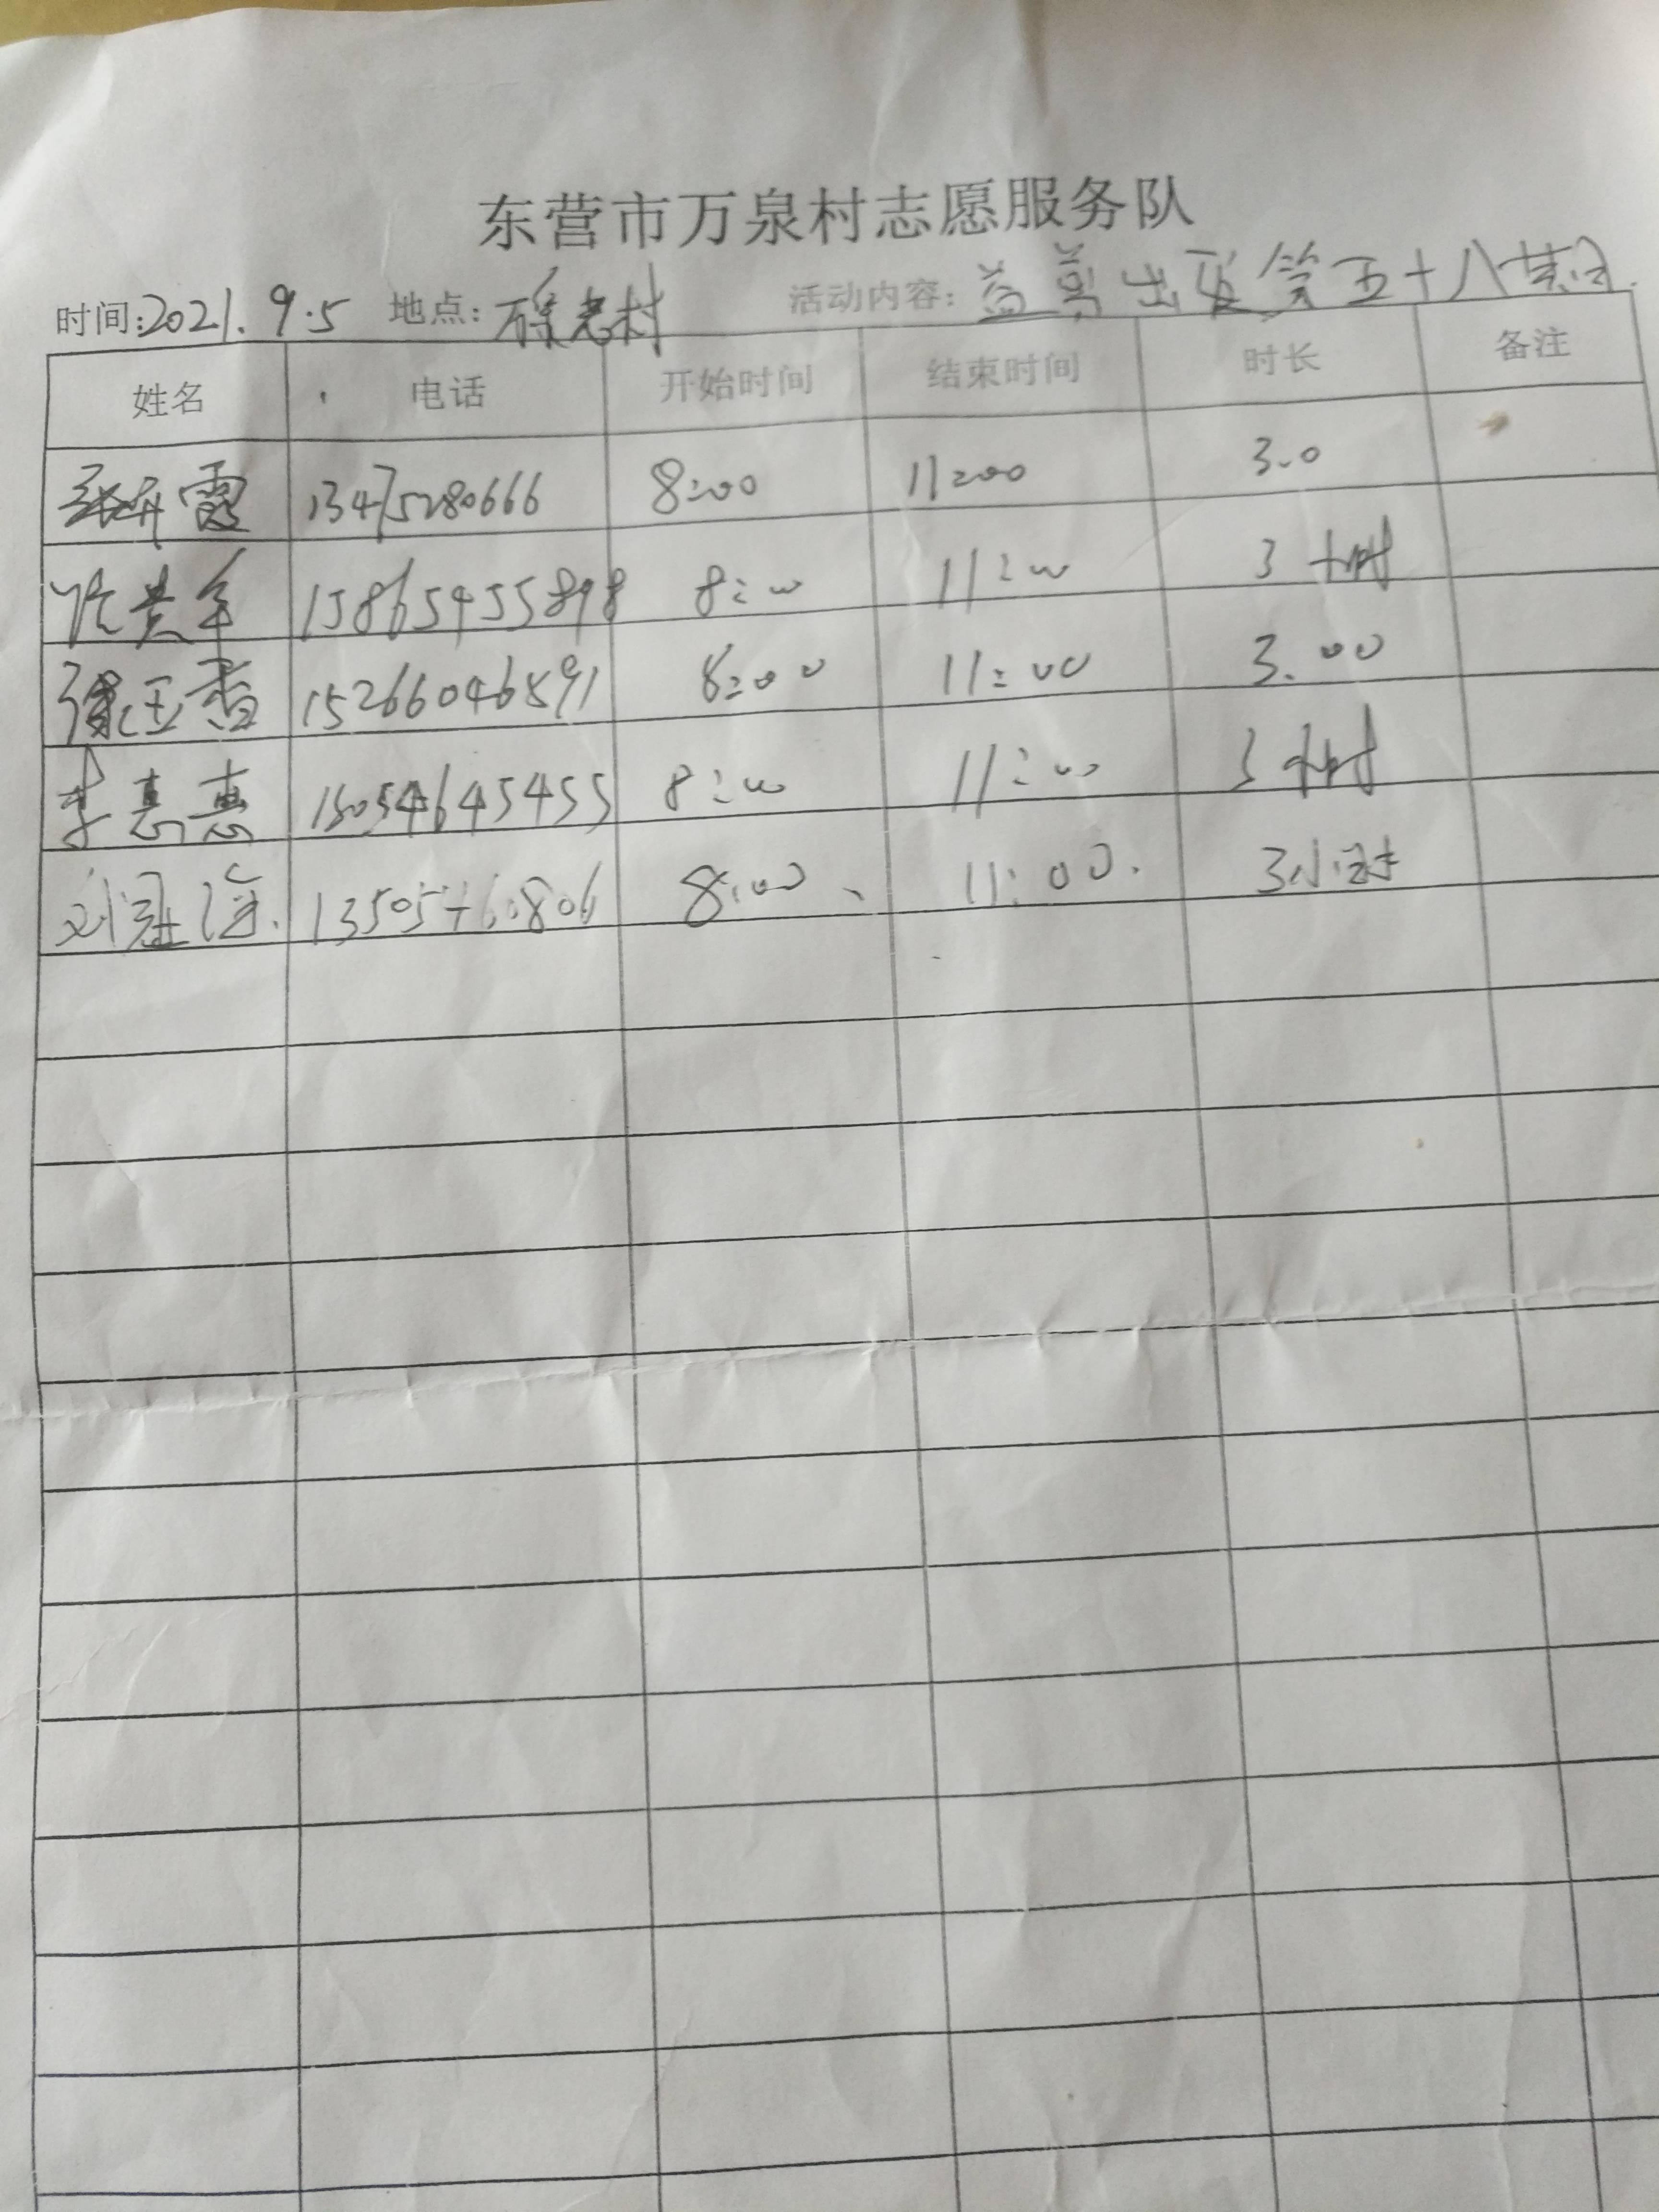 东营市万泉村志愿服务队
时间:2021.9.5 地点: 村 活动内容: 益 出发第五十八期
姓名 电话 开始时间 结束时间 时长 备注
霞 13475280666 8:00 11:00 3.0
8:00 11:00 3小时
玉香 15266046891 8:00 11:00 3.00
李惠惠 15054645455 8:00 11:00 3小时
刘冠 13505460806 8:00 11:00. 3小时